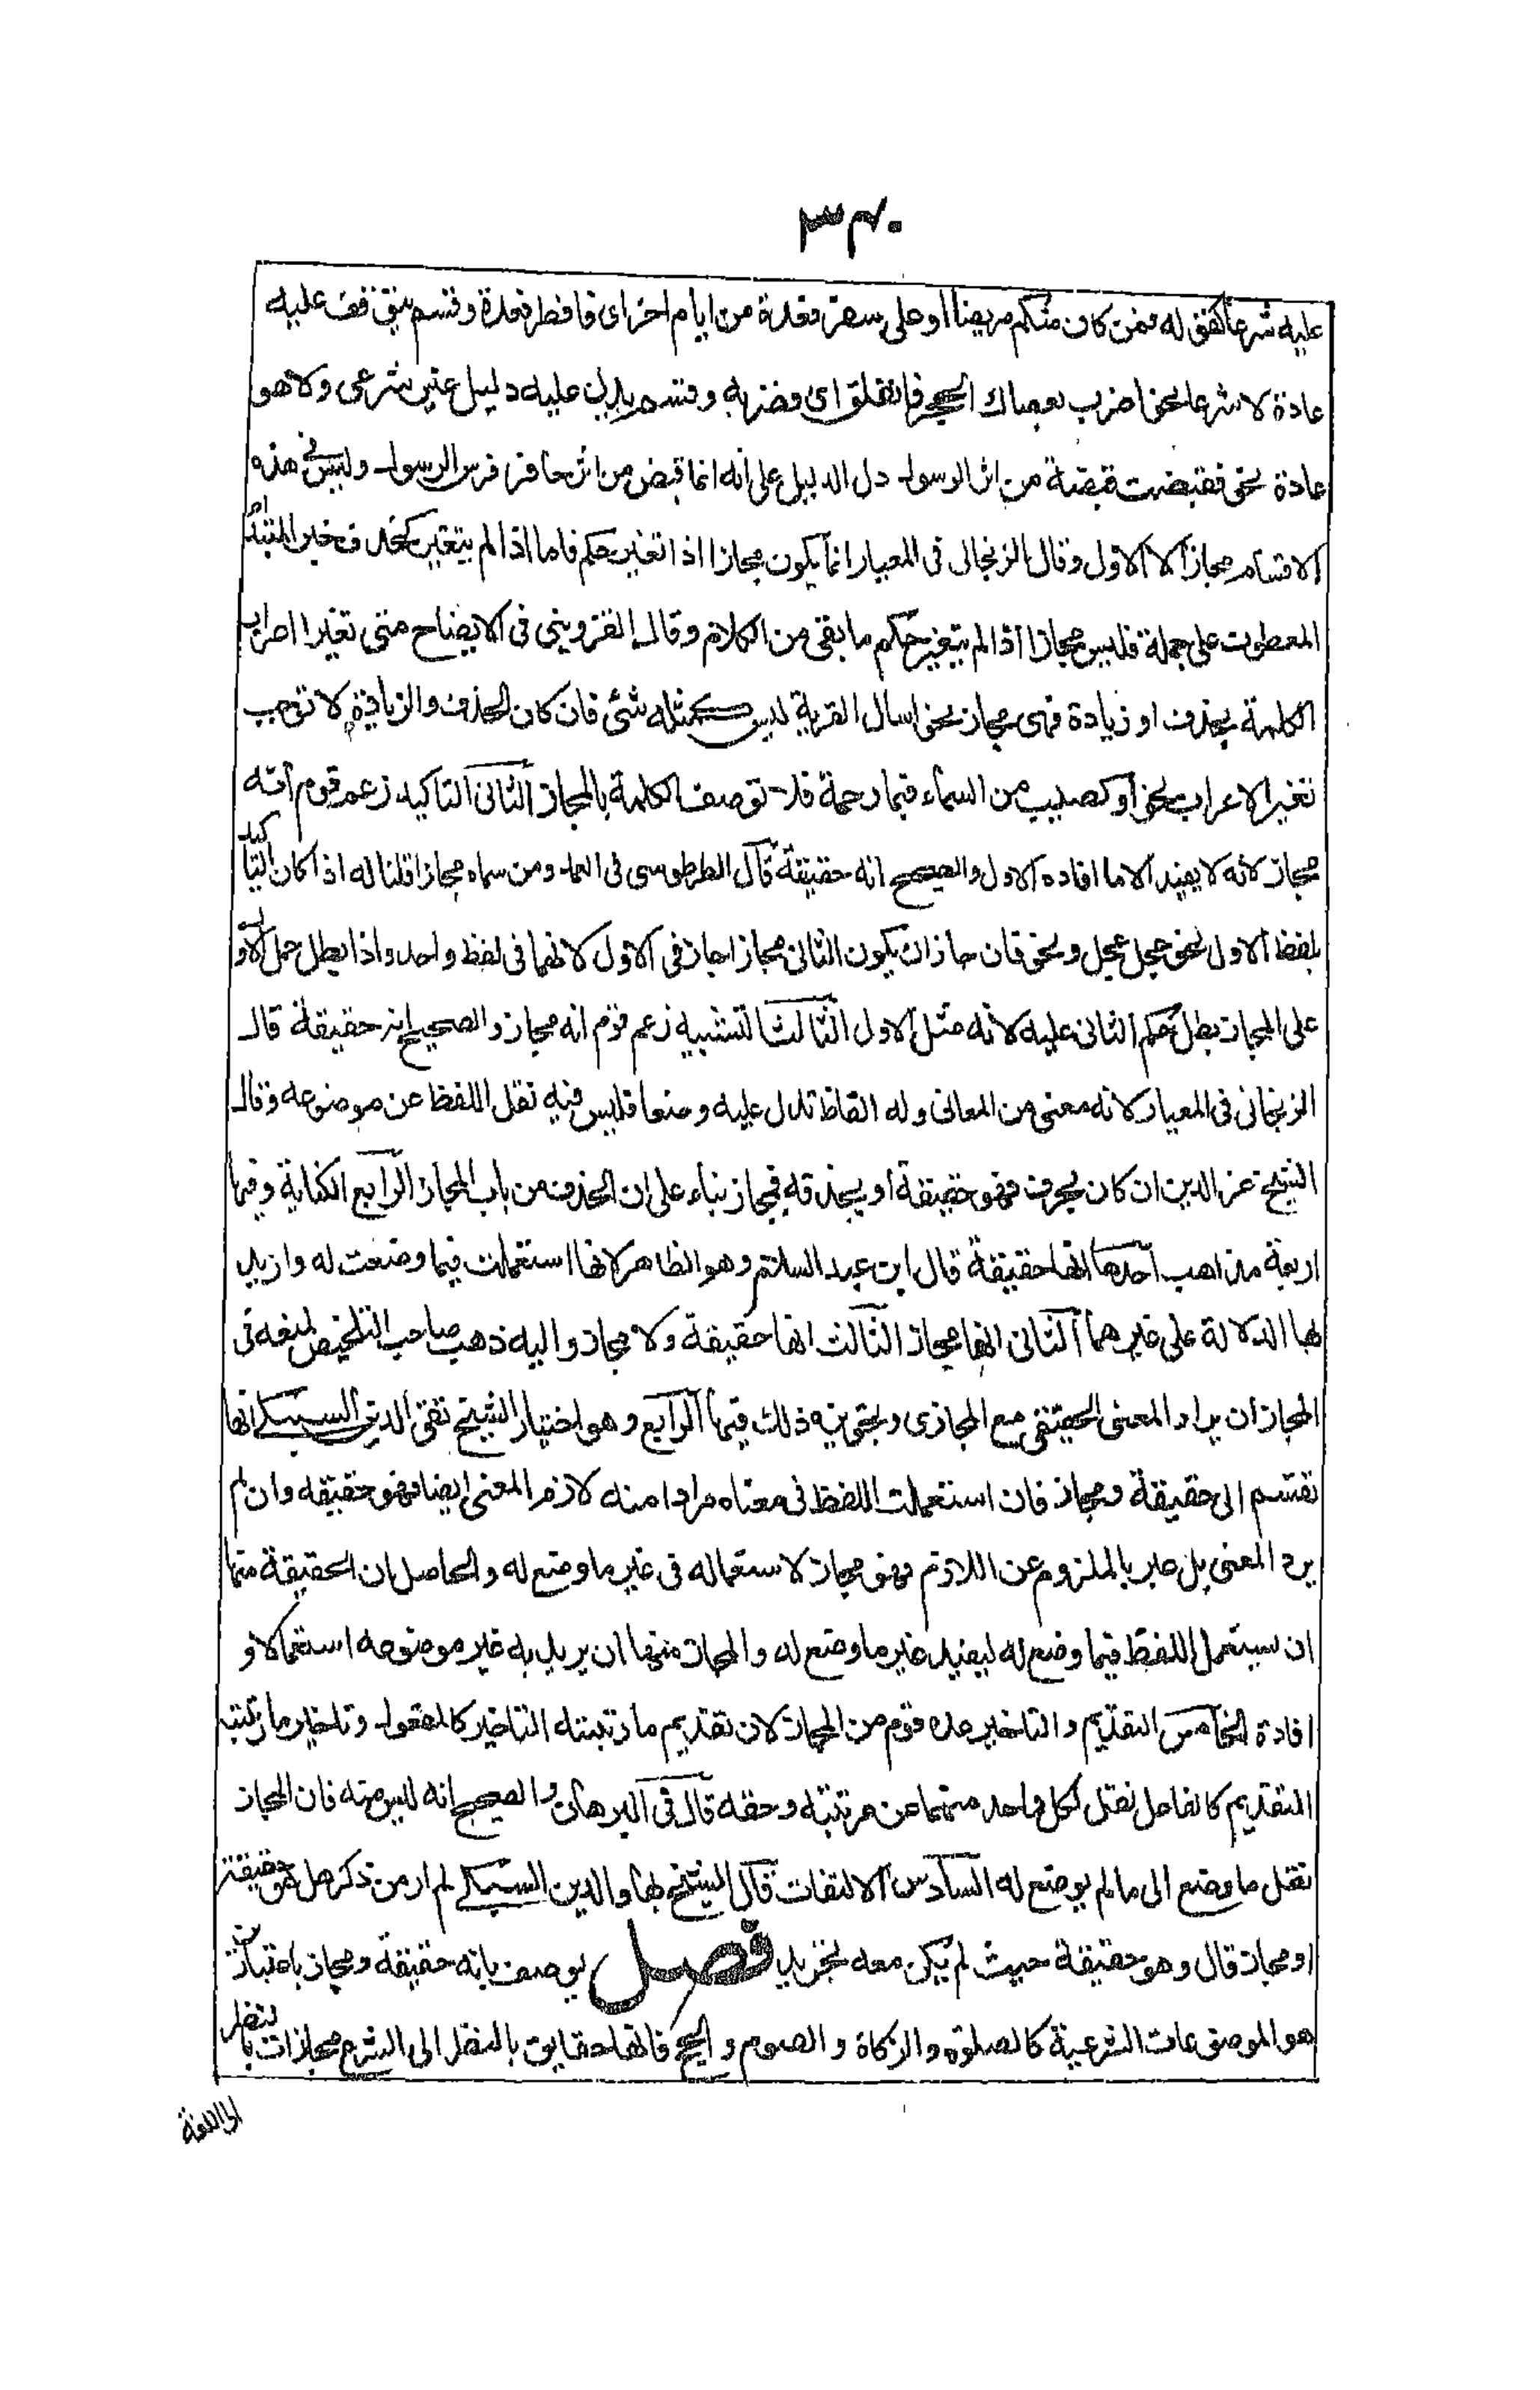 ٣٤٠
عليه شرعا كقوله فمن كان منكم مريضا او على سفر فعدة من ايام اخر اى فافطر فعدة وقسم يتوقف عليه
عادة لا شرعا نحو اضرب بعصاك الحجر فانفلق اى فضربه وقسم يدل عليه دليل غير شرعى ولا هو
عادة نحو فقبضت قبضة من اثر الرسول دل الدليل على انه انما قبض من اثر حافر فرس الرسول وليس فى هذه
الاقسام مجازا الا الاول وقال الزنجانى فى المعيار انما يكون مجازا اذا تغير حكم فاما اذا لم يتغير كحذف خبر المبتدأ
المعطوف على جملة فليس مجازا اذا لم يتغير حكم ما بقى من الكلام وقال القزوينى فى الايضاح متى تغير اعراب
الكلمة بحذف او زيادة فهى مجاز نحو اسال القرية ليس كمثله شئ فان كان الحذف والزيادة لا توجب
تغير الاعراب نحو أو كصيب من السمآء فبما رحمة فلا توصف الكلمة بالمجاز الثانى التاكيد زعم قوم أنه
مجاز لانه لا يفيد الا ما افاده الاول والصحيح انه حقيقة قال الطرطوسى فى العمد ومن سماه مجازا قلنا له اذا كان التاكيد
بلفظ الاول نحو عجل عجل ونحوه فان جاز ان يكون الثانى مجازا جاز فى الاول لانهما فى لفظ واحد واذا بطل حمل الاول
على المجاز بطل حكم الثانى عليه لانه مثل الاول الثالث التشبيه زعم قوم انه مجاز والصحيح انه حقيقة قال
الزنجانى فى المعيار لانه معنى من المعانى وله الفاظ تدل عليه وضعا فليس فيه نقل اللفظ عن موضوعه وقال
الشيخ عز الدين ان كان بحرف فهو حقيقة او بحذفه فمجاز بناء على ان الحذف من باب المجاز الرابع الكناية وفيها
اربعة مذاهب احدها انها حقيقة قال ابن عبد السلام وهو الظاهر لانها استعملت فيما وضعت له واريد
بها الدلالة على غيرهما الثانى انها مجاز الثالث انها حقيقة ولا مجاز واليه ذهب صاحب التلخيص لمنعه فى
المجاز ان يراد المعنى الحقيقى مع المجازى وتجويزه ذلك فيها الرابع وهو اختيار الشيخ تقى الدين السبكى انها
تقسم الى حقيقة ومجاز فان استعملت اللفظ فى معناه مرادا منه لازم المعنى ايضا فهو حقيقه وان لم
يرد المعنى بل عبر بالملزوم عن اللازم فهو مجاز لاستعماله فى غير ما وضع له والحاصل ان الحقيقة منها
ان يستعمل اللفظ فيما وضع له ليفيد غير ما وضع له والمجاز منها ان يريد به غير موضوعه استعمالا و
افادة الخامس التقديم والتاخير عده قوم من المجاز لان تقديم ما رتبته التاخير كالمفعول وتاخير ما رتبته
التقديم كالفاعل نقل لكل واحد منهما عن مرتبته وحقه قال فى البرهان والصحيح انه ليس منه فان المجاز
نقل ما وضع الى ما لم يوضع له السادس الالتفات قال الشيخ بهاء الدين السبكى لم ار من ذكر هل هو حقيقة
او مجاز قال وهو حقيقة حيث لم يكن معه تجريد فصل يوصف بانه حقيقة ومجاز باعتبارين
هو الموضوعات الشرعية كالصلوه والزكاة والصوم والحج فانها حقايق بالنظر الى الشرع مجازات بالنظر
الى اللغة